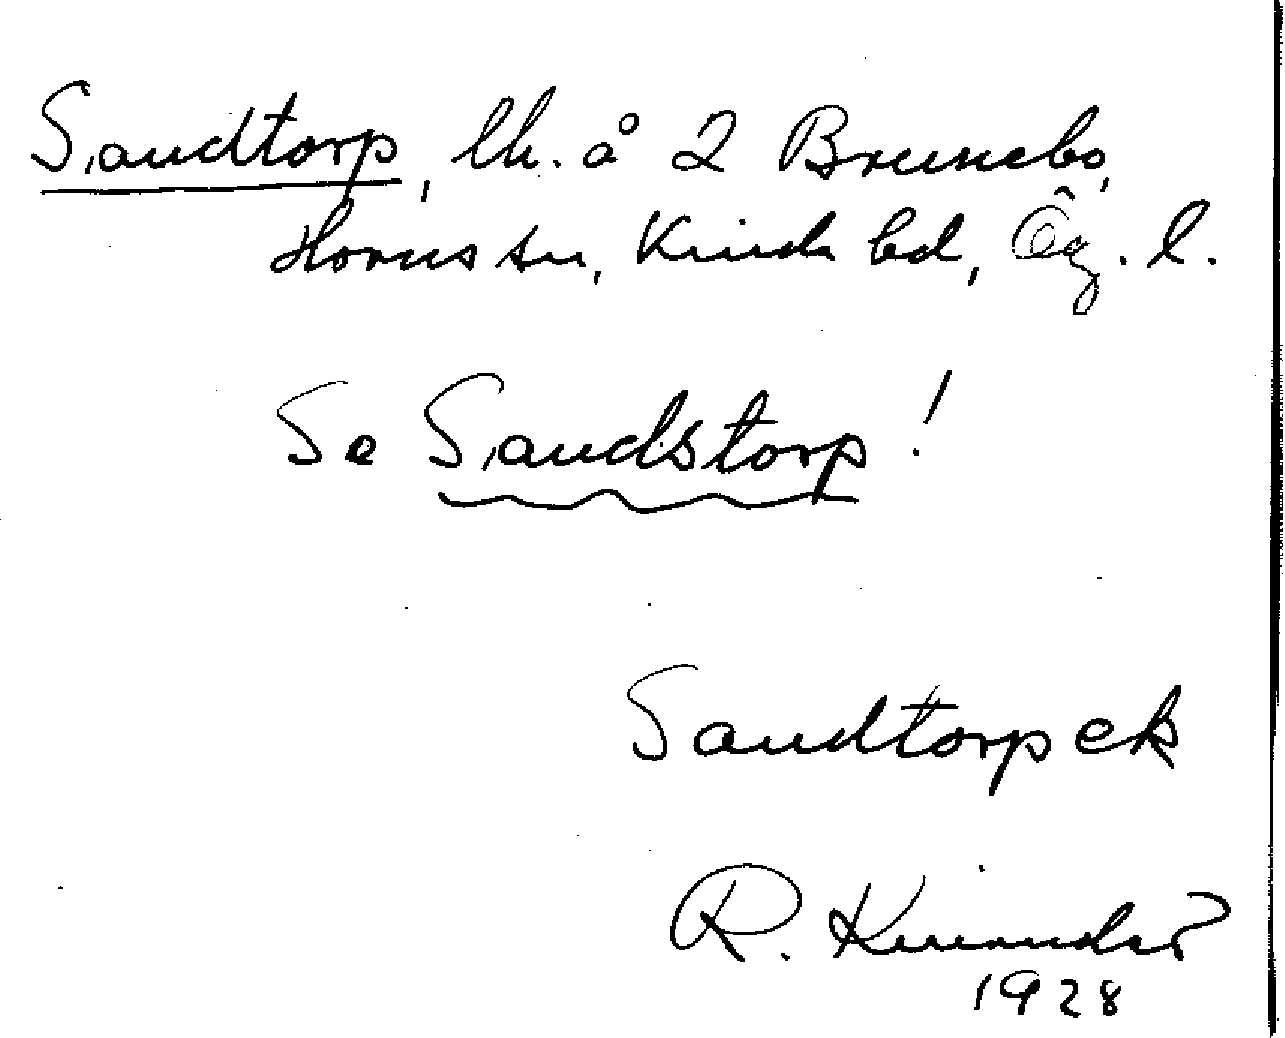 Sandtorp, lh. å 2 Brunebo,
Horns sn, Kinda hd, Ög. l.
Se Sandstorp!
Sandtorp ek
R. Kinander
1928